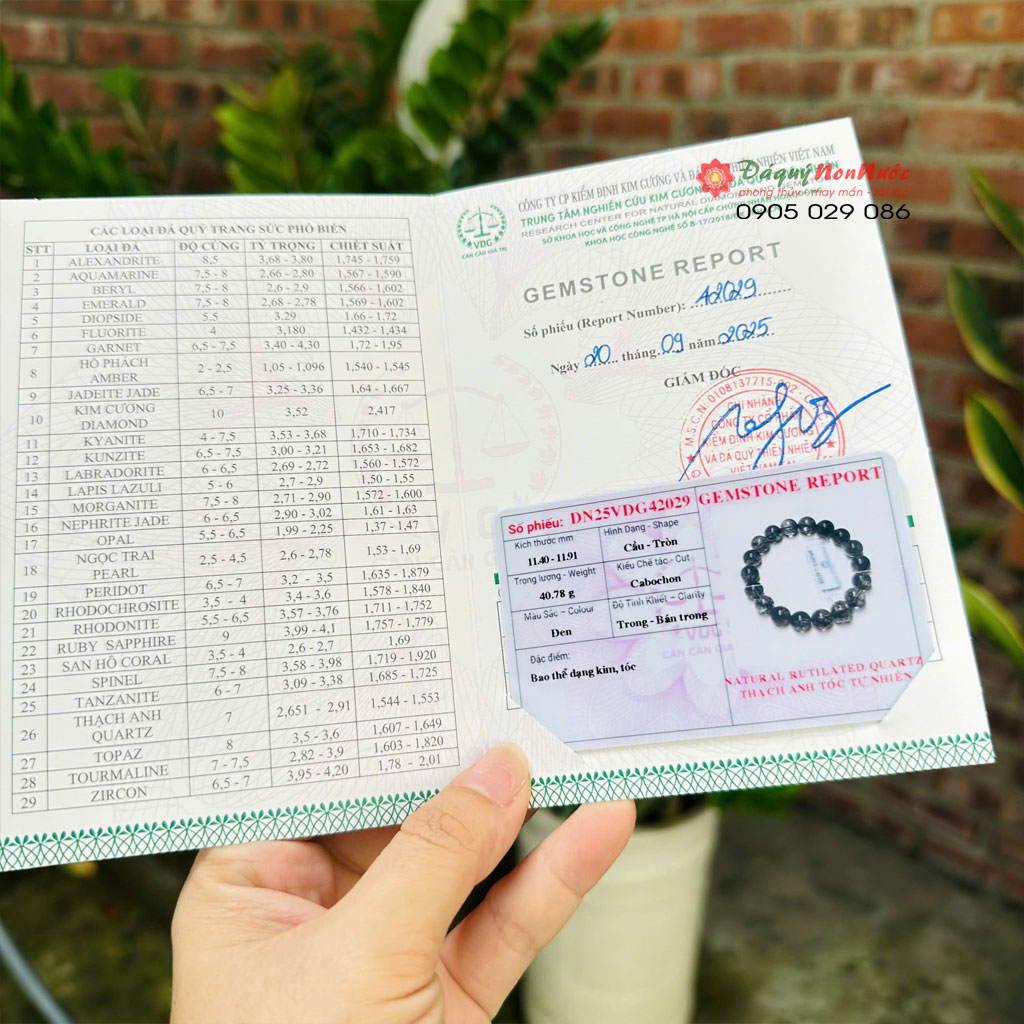 CÁC LOẠI ĐÁ QUÝ TRANG SỨC PHỔ BIẾN
STT LOẠI ĐÁ ĐỘ CỨNG TỶ TRỌNG CHIẾT SUẤT
1 ALEXANDRITE 8,5 3,68 - 3,80 1,745 - 1,759
2 AQUAMARINE 7,5 - 8 2,66 - 2,80 1,567 - 1,590
3 BERYL 7,5 - 8 2,6 - 2,9 1,566 - 1,602
4 EMERALD 7,5 - 8 2,68 - 2,78 1,569 - 1,602
5 DIOPSIDE 5.5 3.29 1.66 - 1.72
6 FLUORITE 4 3,180 1,432 - 1,434
7 GARNET 6,5 - 7,5 3,40 - 4,30 1,72 - 1,95
8 HỔ PHÁCH AMBER 2 - 2,5 1,05 - 1,096 1,540 - 1,545
9 JADEITE JADE 6,5 - 7 3,25 - 3,36 1,64 - 1,667
10 KIM CƯƠNG DIAMOND 10 3,52 2,417
11 KYANITE 4 - 7,5 3,53 - 3,68 1,710 - 1,734
12 KUNZITE 6,5 - 7,5 3,00 - 3,21 1,653 - 1,682
13 LABRADORITE 6 - 6,5 2,69 - 2,72 1,560 - 1,572
14 LAPIS LAZULI 5 - 6 2,7 - 2,9 1,50 - 1,55
15 MORGANITE 7,5 - 8 2,71 - 2,90 1,572 - 1,600
16 NEPHRITE JADE 6 - 6,5 2,90 - 3,02 1,61 - 1,63
17 OPAL 5,5 - 6,5 1,99 - 2,25 1,37 - 1,47
18 NGỌC TRAI PEARL 2,5 - 4,5 2,6 - 2,78 1,53 - 1,69
19 PERIDOT 6,5 - 7 3,2 - 3,5 1,635 - 1,879
20 RHODOCHROSITE 3,5 - 4 3,4 - 3,6 1,578 - 1,840
21 RHODONITE 5,5 - 6,5 3,57 - 3,76 1,711 - 1,752
22 RUBY SAPPHIRE 9 3,99 - 4,1 1,757 - 1,779
23 SAN HÔ CORAL 3,5 - 4 2,6 - 2,7 1,69
24 SPINEL 7,5 - 8 3,58 - 3,98 1,719 - 1,920
25 TANZANITE 6 - 7 3,09 - 3,38 1,685 - 1,725
26 THẠCH ANH QUARTZ 7 2,651 - 2,91 1,544 - 1,553
27 TOPAZ 8 3,5 - 3,6 1,607 - 1,649
28 TOURMALINE 7 - 7,5 2,82 - 3,9 1,603 - 1,820
29 ZIRCON 6,5 - 7 3,95 - 4,20 1,78 - 2,01
VDG
CÁN CÂN GIÁ TRỊ
CÔNG TY CP KIỂM ĐỊNH KIM CƯƠNG VÀ ĐÁ NHIÊN VIỆT NAM
TRUNG TÂM NGHIÊN CỨU KIM CƯƠNG
RESEARCH CENTER FOR NATURAL
SỞ KHOA HỌC VÀ CÔNG NGHỆ TP HÀ NỘI CẤP CHỨNG NHẬN
KHOA HỌC CÔNG NGHỆ SỐ
ĐáquýNonNước
phong thủy - may mắn - tài lộc
0905 029 086
GEMSTONE REPORT
Số phiếu (Report Number): A2029
Ngày 20 tháng 09 năm 2025
GIÁM ĐỐC
CHI NHÁNH
CÔNG TY CỔ PHẦN
KIỂM ĐỊNH KIM CƯƠNG
VÀ ĐÁ QUÝ THIÊN NHIÊN
Số phiếu: DN25VDG42029
GEMSTONE REPORT
Kích thước mm
11.40 - 11.91
Hình Dạng - Shape
Cầu - Tròn
Trọng lượng - Weight
40.78 g
Kiểu Chế tác - Cut
Cabochon
Màu Sắc - Colour
Đen
Độ Tinh Khiết - Clarity
Trong - Bán trong
Đặc điểm:
Bao thể dạng kim, tóc
NATURAL RUTILATED QUARTZ
THẠCH ANH TÓC TỰ NHIÊN